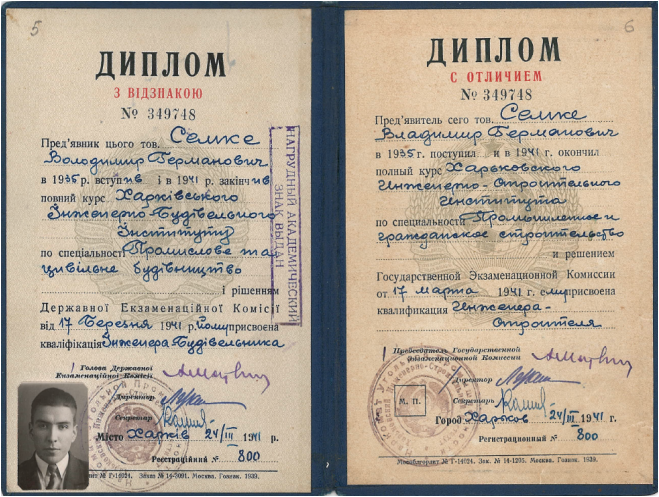 5
ДИПЛОМ
З ВІДЗНАКОЮ
№ 349748
Пред'явник цього тов. Семке
Володимир Германович
в 1935 р. вступив і в 1941 р. закінчив
повний курс Харківського
Інженерно Будівельного
Інституту
по спеціальності Промислове та
цивільне будівництво
і рішенням
Державної Екзаменаційної Комісії
від 17 Березня 1941 р. йому присвоєна
кваліфікація Інженера Будівельника
Голова Державної
Екзаменаційної Комісії
Директор
Секретар
Місто Харків 24/III 1941 р.
Реєстраційний № 800
НАГРУДНЫЙ АКАДЕМИЧЕСКИЙ
ЗНАК ВЫДАН
6
ДИПЛОМ
С ОТЛИЧИЕМ
№ 349748
Пред'явитель сего тов. Семке
Владимир Германович
в 1935 г. поступил и в 1941 г. окончил
полный курс Харьковского
Инженерно-Строительного
Института
по специальности Промышленное и
гражданское строительство
и решением
Государственной Экзаменационной Комиссии
от 17 марта 1941 г. ему присвоена
квалификация Инженера-
Строителя
Председатель Государственной
Экзаменационной Комиссии
Директор
Секретарь
М. П.
Город Харьков 24/III 1941 г.
Регистрационный № 800